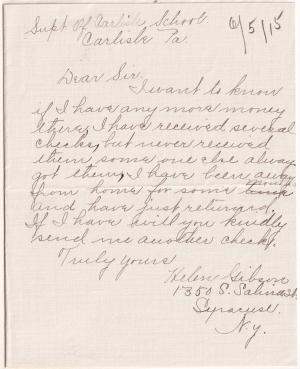 Supt. of Carlisle School
6/5/15
Carlisle Pa
Dear Sir,
I want to know
if I have any more money
there, I have received several
checks, but never recieved
them some one else always
got them, I have been away
from home for some time
and have just returned
If I have will you kindly
send me another check.
Truly Yours
Helen Gibson
1350 S. Salina St.
Syracuse
N.Y.